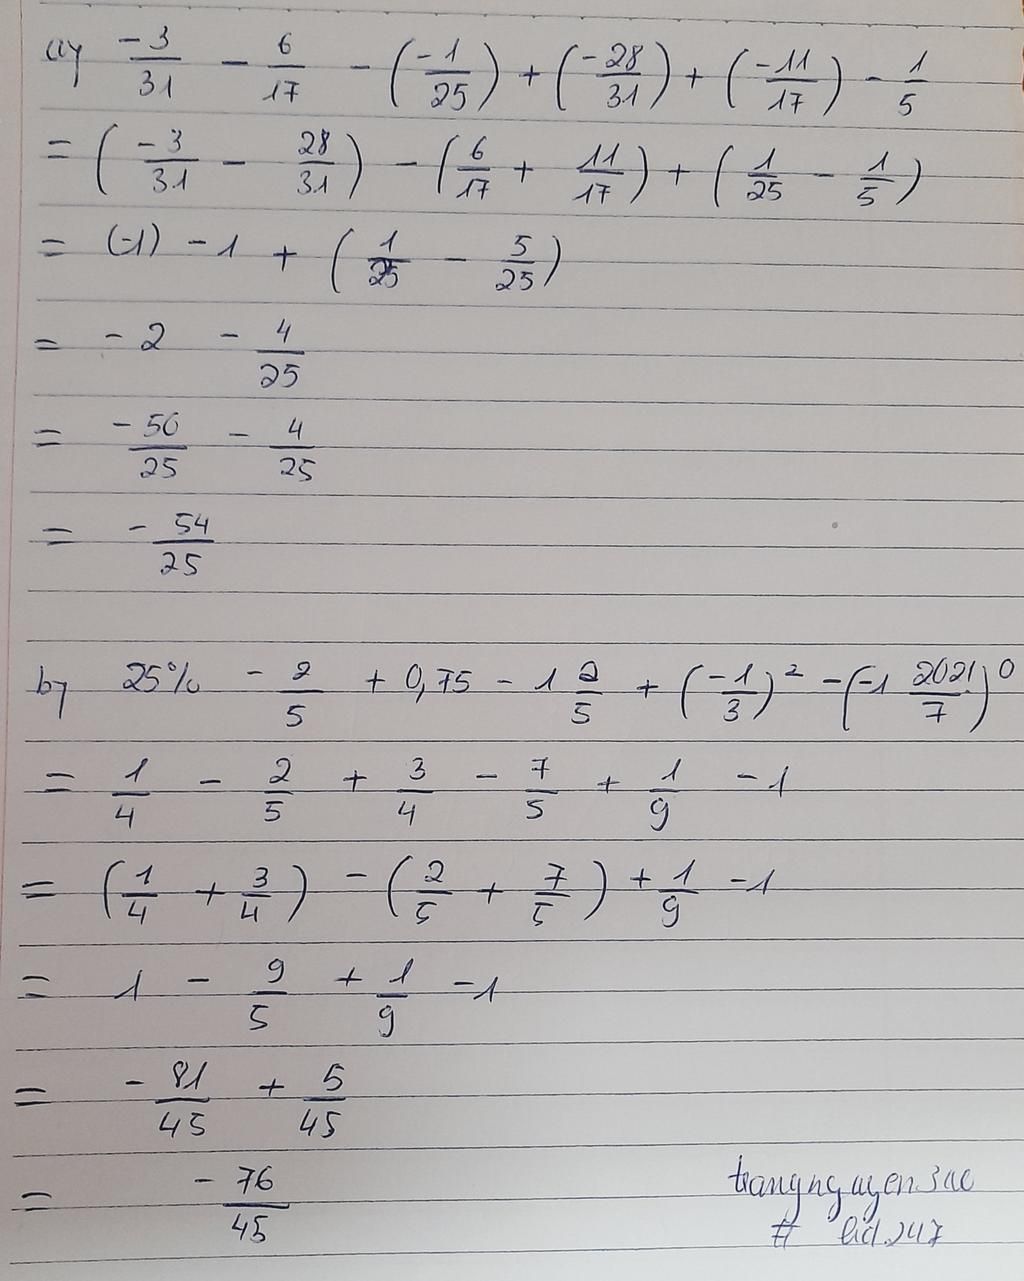 a) -3/31 - 6/17 - (-1/25) + (-28/31) + (-11/17) - 1/5
= (-3/31 - 28/31) - (6/17 + 11/17) + (1/25 - 1/5)
= (-1) - 1 + (1/25 - 5/25)
= -2 - 4/25
= -50/25 - 4/25
= -54/25
b) 25% - 2/5 + 0,75 - 1 2/5 + (-1/3)² - (-1 2021/7)⁰
= 1/4 - 2/5 + 3/4 - 7/5 + 1/9 - 1
= (1/4 + 3/4) - (2/5 + 7/5) + 1/9 - 1
= 1 - 9/5 + 1/9 - 1
= -81/45 + 5/45
= -76/45